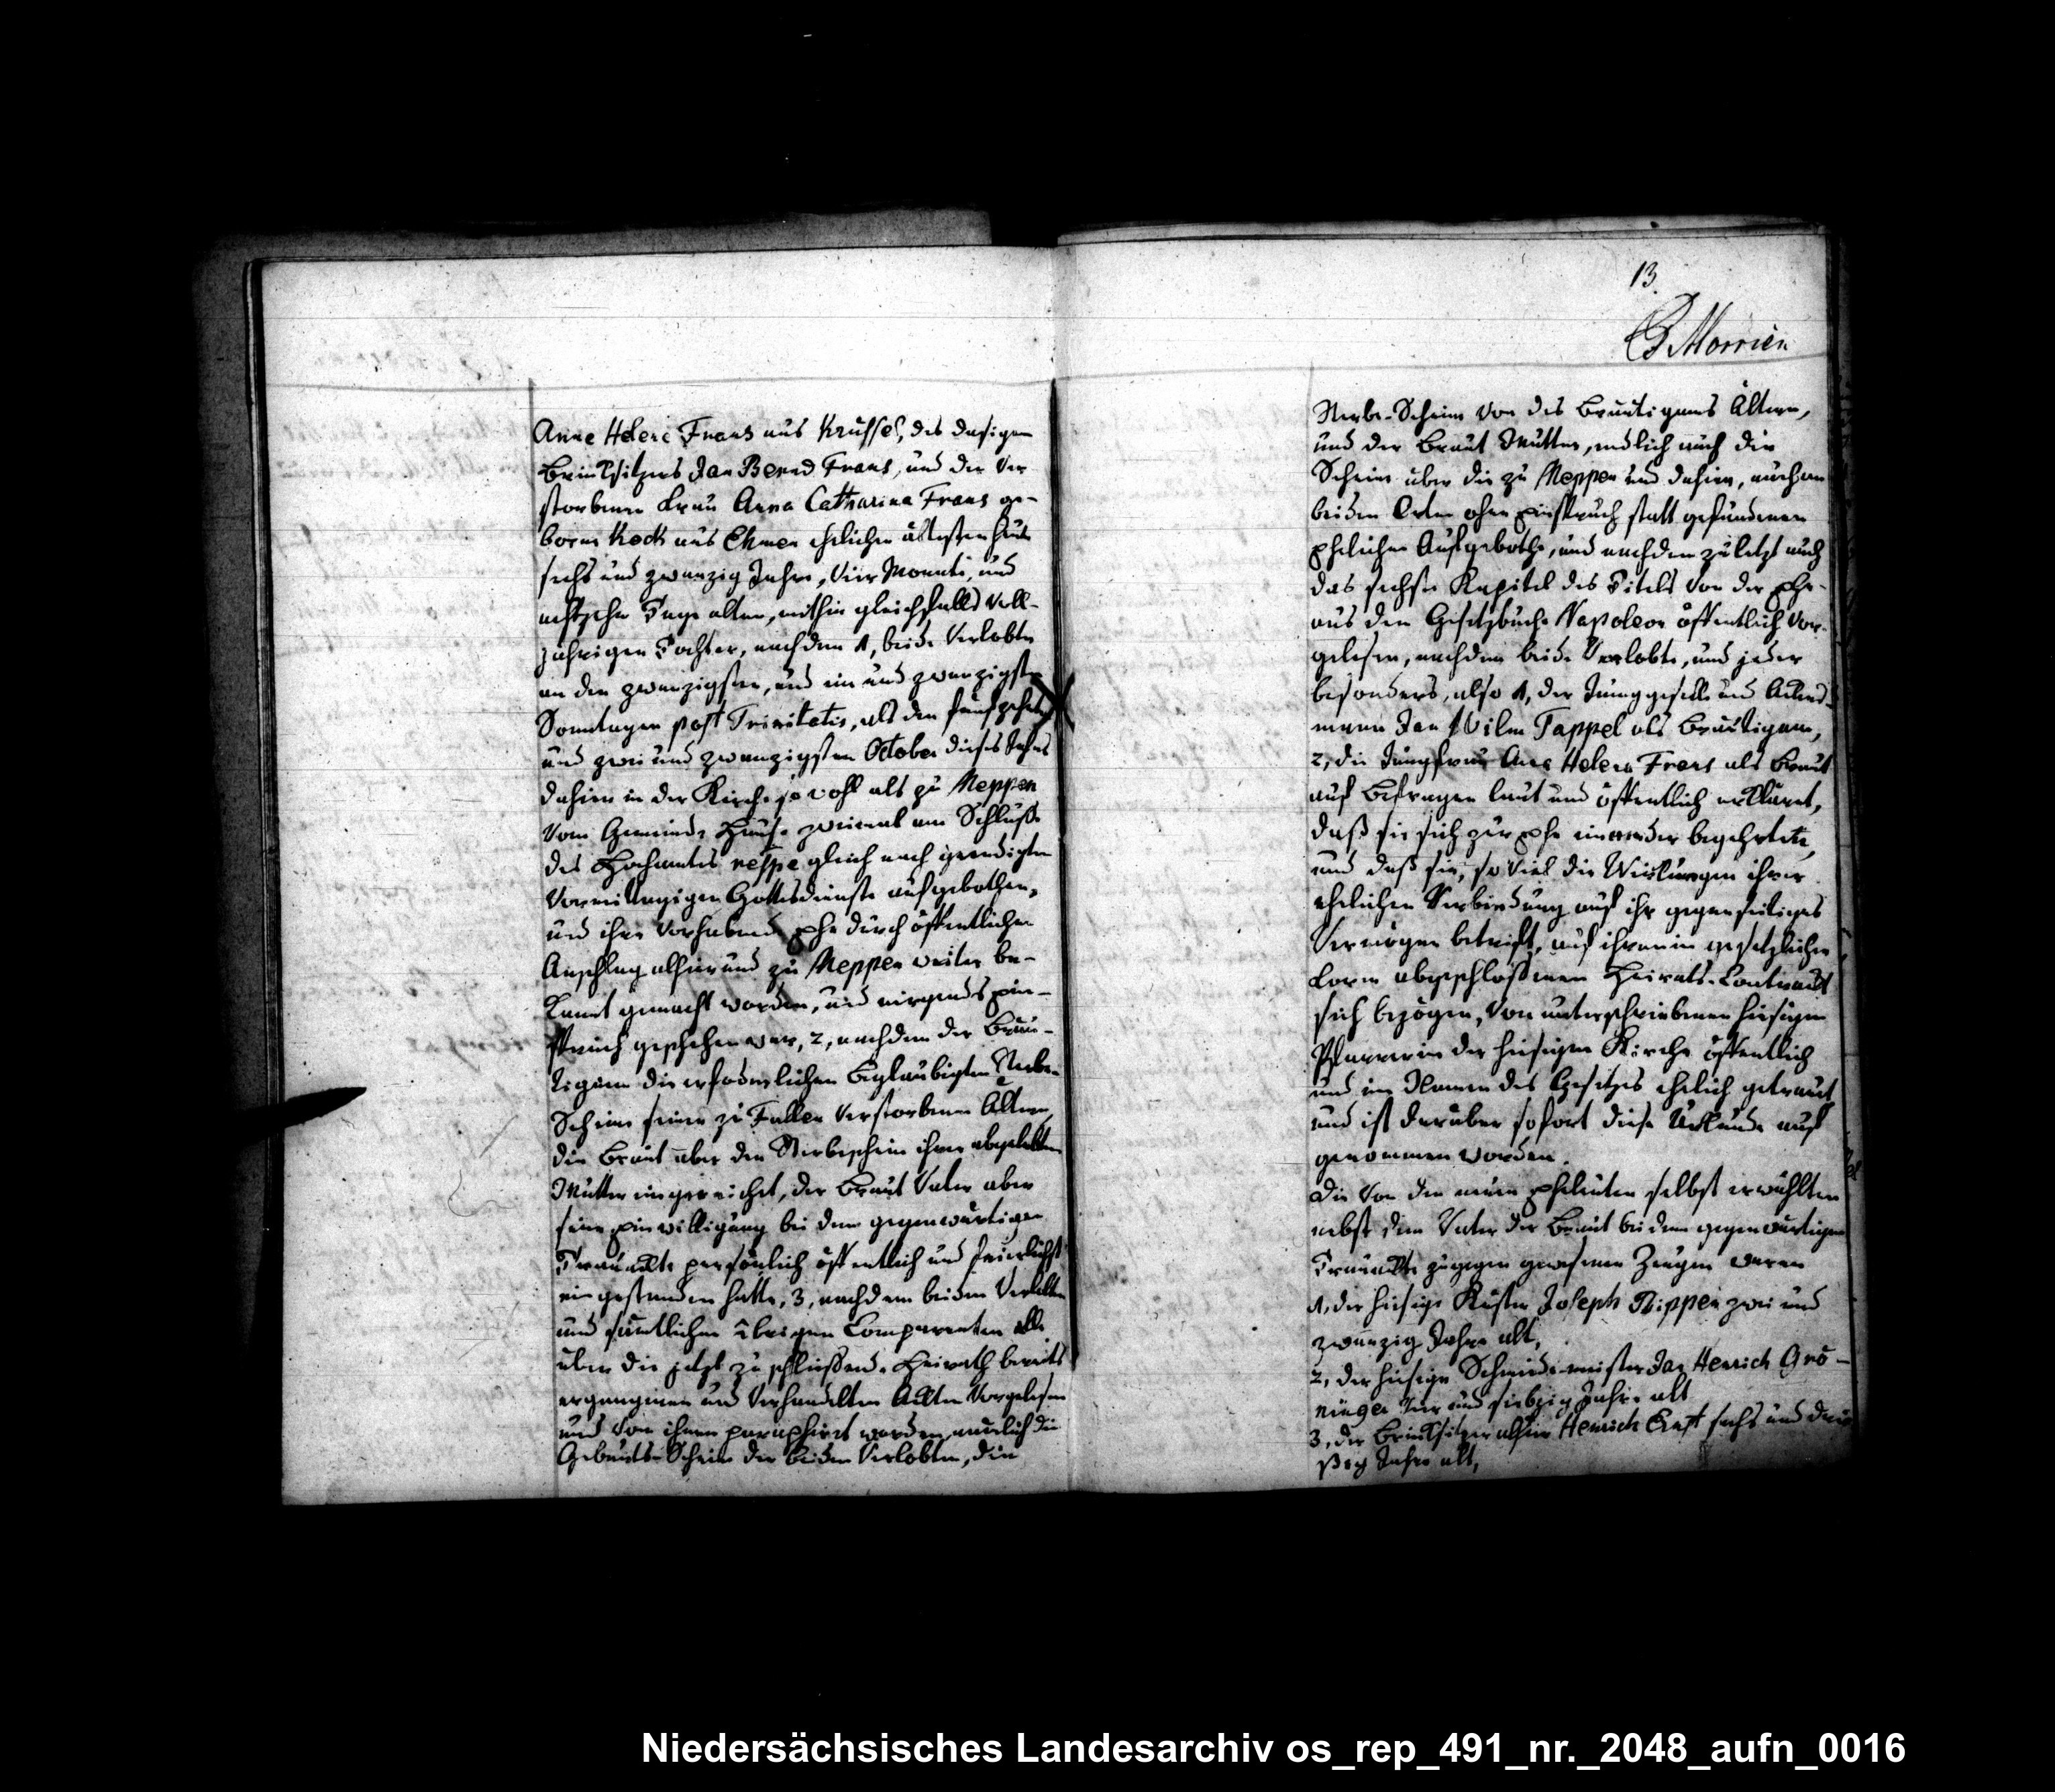 Anne Helene Frans aus Krüssel, des dasigen
Brinksitzers Jan Bernd Frans, und der ver
storbenen Frau Anna Catharina Frans ge-
borne Kock aus Ehmen ehelichen ältesten heute
sechs und zwanzig Jahre, vier Monate, und
achtzehn Tage alten, mithin gleichfalls voll-
jährigen Tochter, nachdem 1, beide Verlobte
an den zwanzigsten, und ein und zwanzigsten
Sonntagen post Trinitatis, als den funfzehnten
und zwei und zwanzigsten October dieses Jahrs
dahier in der Kirche so wohl als zu Meppen
vom Gemeinde Hause zweimal am Schluße
des Hochamtes respe gleich nach geendigten
vormittagigen Gottesdienste aufgebothen,
und ihre vorhabende Ehe durch öffentlichen
Anschlag alhier und zu Meppen weiter be-
kannt gemacht worden, und nirgends Ein-
spruch geschehen war, 2, nachdem der Bräu-
tigam die erfoderlichen beglaubigten Sterbe-
Scheine seiner zu Fullen verstorbenen Ältern,
die Braut aber den Sterbeschein ihrer abgelebten
Mutter eingereichet, der Braut Vater aber
seine Einwilligung bei dem gegenwärtigen
Trauackte persönlich öffentlich und feierlichst
eingestanden hatte, 3, nachdem beiden Verlobten
und sämtlichen übrigen Comparenten alle
über die jetzt zu schließende Heirath bereits
ergangenen und verhandelten Ackten vorgelesen
und von ihnen paraphirt worden, nämlich die
Geburts-Scheine der beiden Verlobten, die
13.
Morrien
Sterbe-Scheine von des Bräutigams Ältern,
und der Braut Mutter, endlich auch die
Scheine über die zu Meppen und dahier, auch an
beiden Orten ohne Einspruch statt gefundenen
Ehelichen Aufgebothe, und nachdem zuletzt auch
das sechste Kapitel des Titels von der Ehe
aus dem Gesetzbuche Napoleon öffentlich vor-
gelesen, nachdem beide Verlobte, und jeder
besonders, also 1, der Junggeselle und Ackers-
mann Jan Wilm Tappel als Bräutigam,
2, die Jungfrau Ana Helena Frans als Braut
auf Befragen laut und öffentlich erkläret,
daß sie sich zur Ehe einander begehrten,
und daß sie, so viel die Wirkungen ihrer
ehelichen Verbindung auf ihr gegenseitiges
Vermögen betrifft, auf ihren in gesetzlicher
Form abgeschloßenen Heirats-Contract
sich bezögen, von unterschriebenen hiesigen
Pfarrer in der hiesigen Kirche öffentlich
und im Namen des Gesetzes ehelich getraut
und ist darüber sofort diese Urkunde auf
genommen worden.
Die von den neuen Eheleuten selbst erwählten
nebst dem Vater der Braut bei dem gegenwärtigen
Trauackte zugegen gewesenen Zeugen waren
1, der hiesige Küster Joseph Rippen zwei und
zwanzig Jahre alt,
2, der hiesige Schmiedemeister Jan Henrich Grö-
ninger vier und siebzig Jahre alt
3, der Brincksitzer alhier Henrich Ernst sechs und drei
ßig Jahre alt,
Niedersächsisches Landesarchiv os_rep_491_nr._2048_aufn_0016